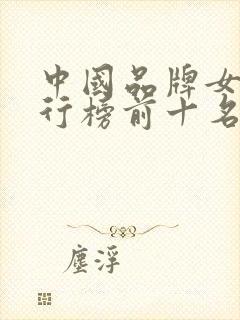 中國品牌女
行榜前十名
塵浮